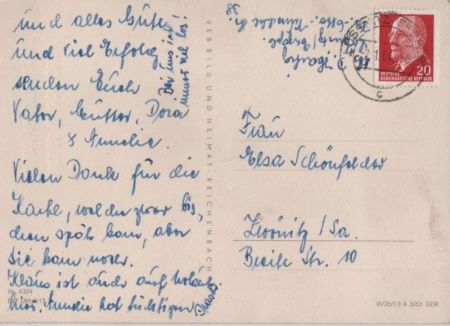 und alles Gute
und viel Erfolg
senden Euch
Vater, Mutter, Dora
& Annelie.
Bei uns ist
immer viel los!
Vielen Dank für die
Karte, welche zwar bis
chen spät kam, aber
sie kam noch.
Klaus ist auch auf Urlaub
hier. Annelie hat tüchtigen
Nr. 4324
VEB BILD UND HEIMAT REICHENBACH
DEUTSCHE
DEMOKRATISCHE REPUBLIK
20
Frau
Elsa Schönfelder
Zwönitz/Sa.
Breite Str. 10
III/26/13 A 3/63 DDR